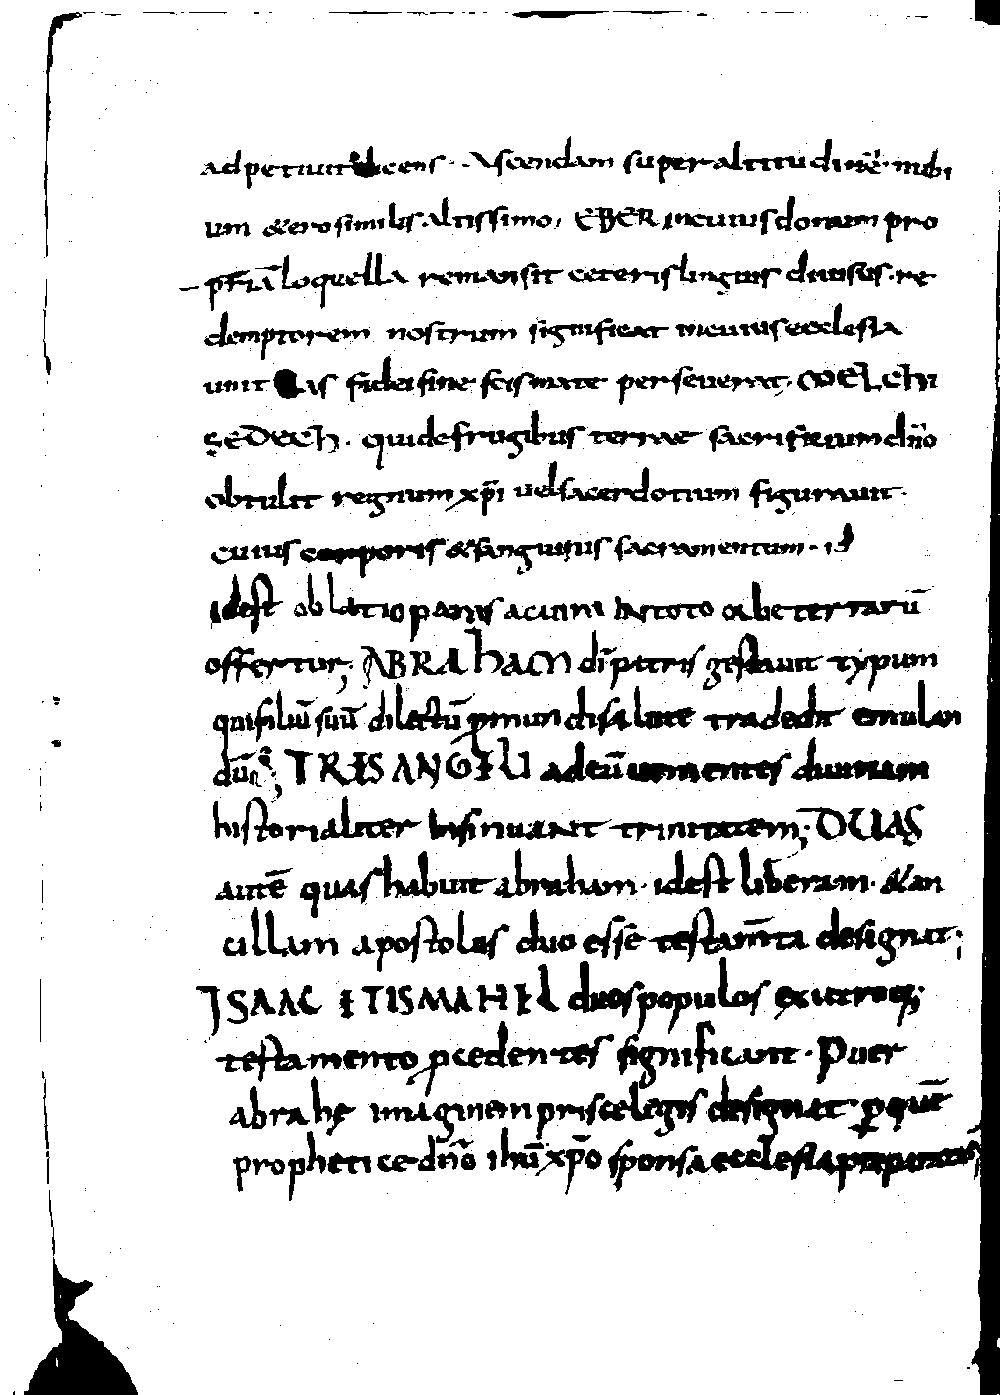 adpetiuit dicens · Ascendam super altitudinē nubi
um & ero similis altissimo, EBER in cuius domum pro
pria loquella remansit ceteris linguis diuisis · re
demptorem nostrum significat in cuius ecclesia
unitas fidei sine scismate perseuerat, MELCHI
SEDECH · qui de frugibus terrae sacrificium dn̄o
obtulit regnum xp̄i uel sacerdotium figurauit ·
cuius corporis & sanguinis sacramentum · id
idest oblatio panis ac uini in toto orbe terrarū
offertur; ABRAHAM dī patris gestauit typum
qui filiū suū dilectū ꝓ mundi salute tradedit
TRES ANGELI ad eū uenientes diuinam
historialiter insinuant trinitatem; DUAS
autē quas habuit abraham · idest liberam · & an
cillam apostolus duo esse testam̄ta designat;
ISAAC ET ISMAHEL duos populos ex utroq;
testamento ꝓcedentes significant · Puer
abrahę imaginem priscę legis designat ꝑ quē
propheticę dn̄o ihū xp̄o sponsa ecclesia